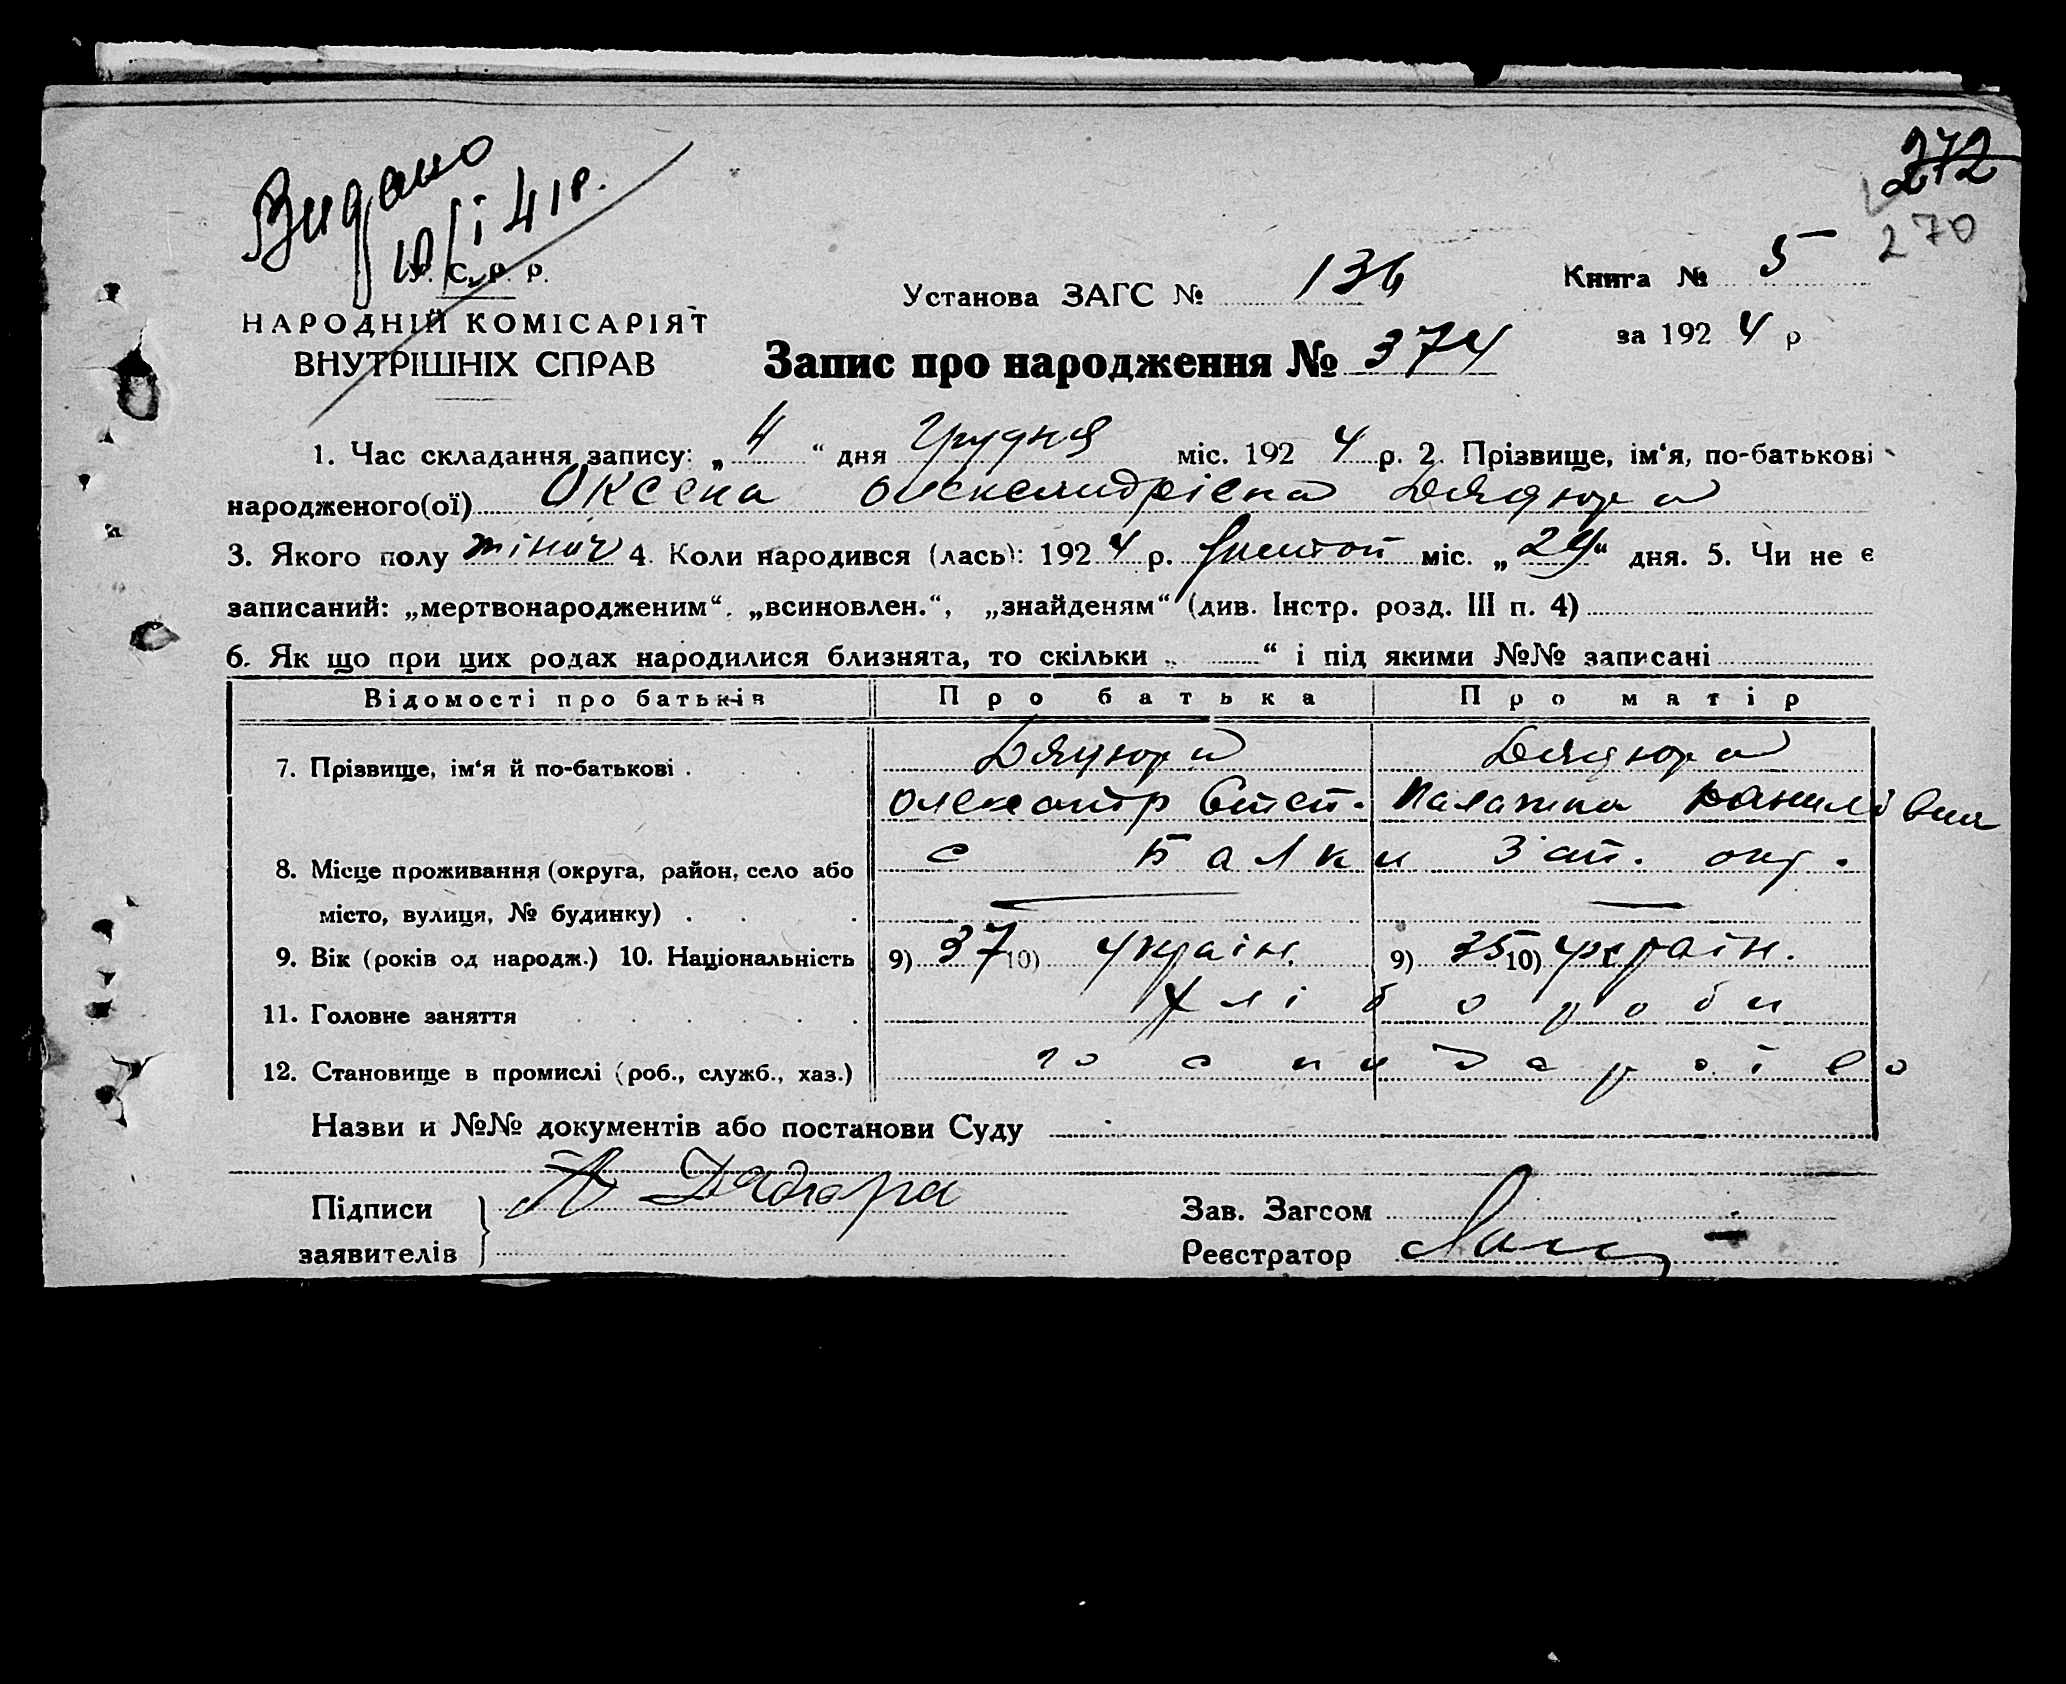 Видано
10/I 41 р.
272
270
С. Р. Р.
НАРОДНІЙ КОМІСАРІЯТ
ВНУТРІШНІХ СПРАВ
Установа ЗАГС № 136
Книга № 5
за 1924 р
Запис про народження № 374
1. Час складання запису: „4“ дня Грудня міс. 1924 р. 2. Прізвище, ім‘я, по-батькові
народженого(ої) Оксена Олександрівна Дядюра
3. Якого полу жіноч 4. Коли народився (лась): 1924 р. міс. „24“ дня. 5. Чи не є
записаний: „мертвонародженим“, „всиновлен.“, „знайденям“ (див. Інстр. розд. III п. 4)
6. Як що при цих родах народилися близнята, то скільки „ “ і під якими №№ записані
Відомості про батьків Про батька Про матір
7. Прізвище, ім‘я й по-батькові Дядюра Дядюра
Олександр Степ. Палажка Данилівна
8. Місце проживання (округа, район, село або с Балки Зап. окр.
місто, вулиця, № будинку)
9. Вік (років од народж.) 10. Національність 9) 37 10) україн. 9) 35 10) україн.
11. Головне заняття хлібороби
12. Становище в промислі (роб., служб., хаз.)
Назви и №№ документів або постанови Суду
Підписи А Дядюра
заявителів
Зав. Загсом
Реєстратор